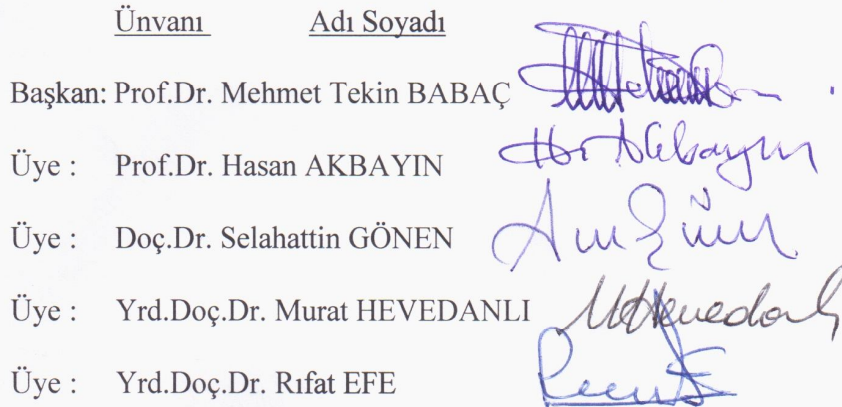 Ünvanı Adı Soyadı
Başkan: Prof.Dr. Mehmet Tekin BABAÇ
Üye : Prof.Dr. Hasan AKBAYIN
Üye : Doç.Dr. Selahattin GÖNEN
Üye : Yrd.Doç.Dr. Murat HEVEDANLI
Üye : Yrd.Doç.Dr. Rıfat EFE